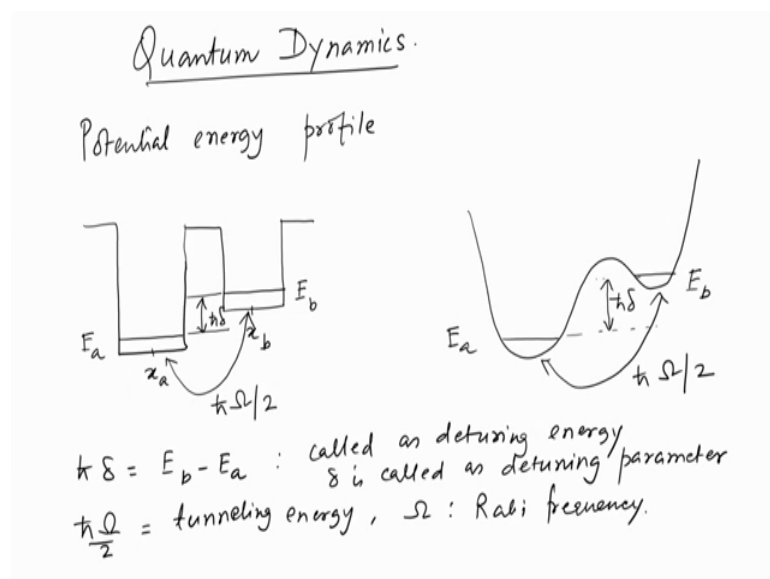 Quantum Dynamics.
Potential energy profile
E_b
ħδ
E_a
x_a
x_b
ħΩ/2
E_b
ħδ
E_a
ħΩ/2
ħδ = E_b - E_a : called as detuning energy
δ is called as detuning parameter
ħΩ/2 = tunneling energy, Ω : Rabi frequency.